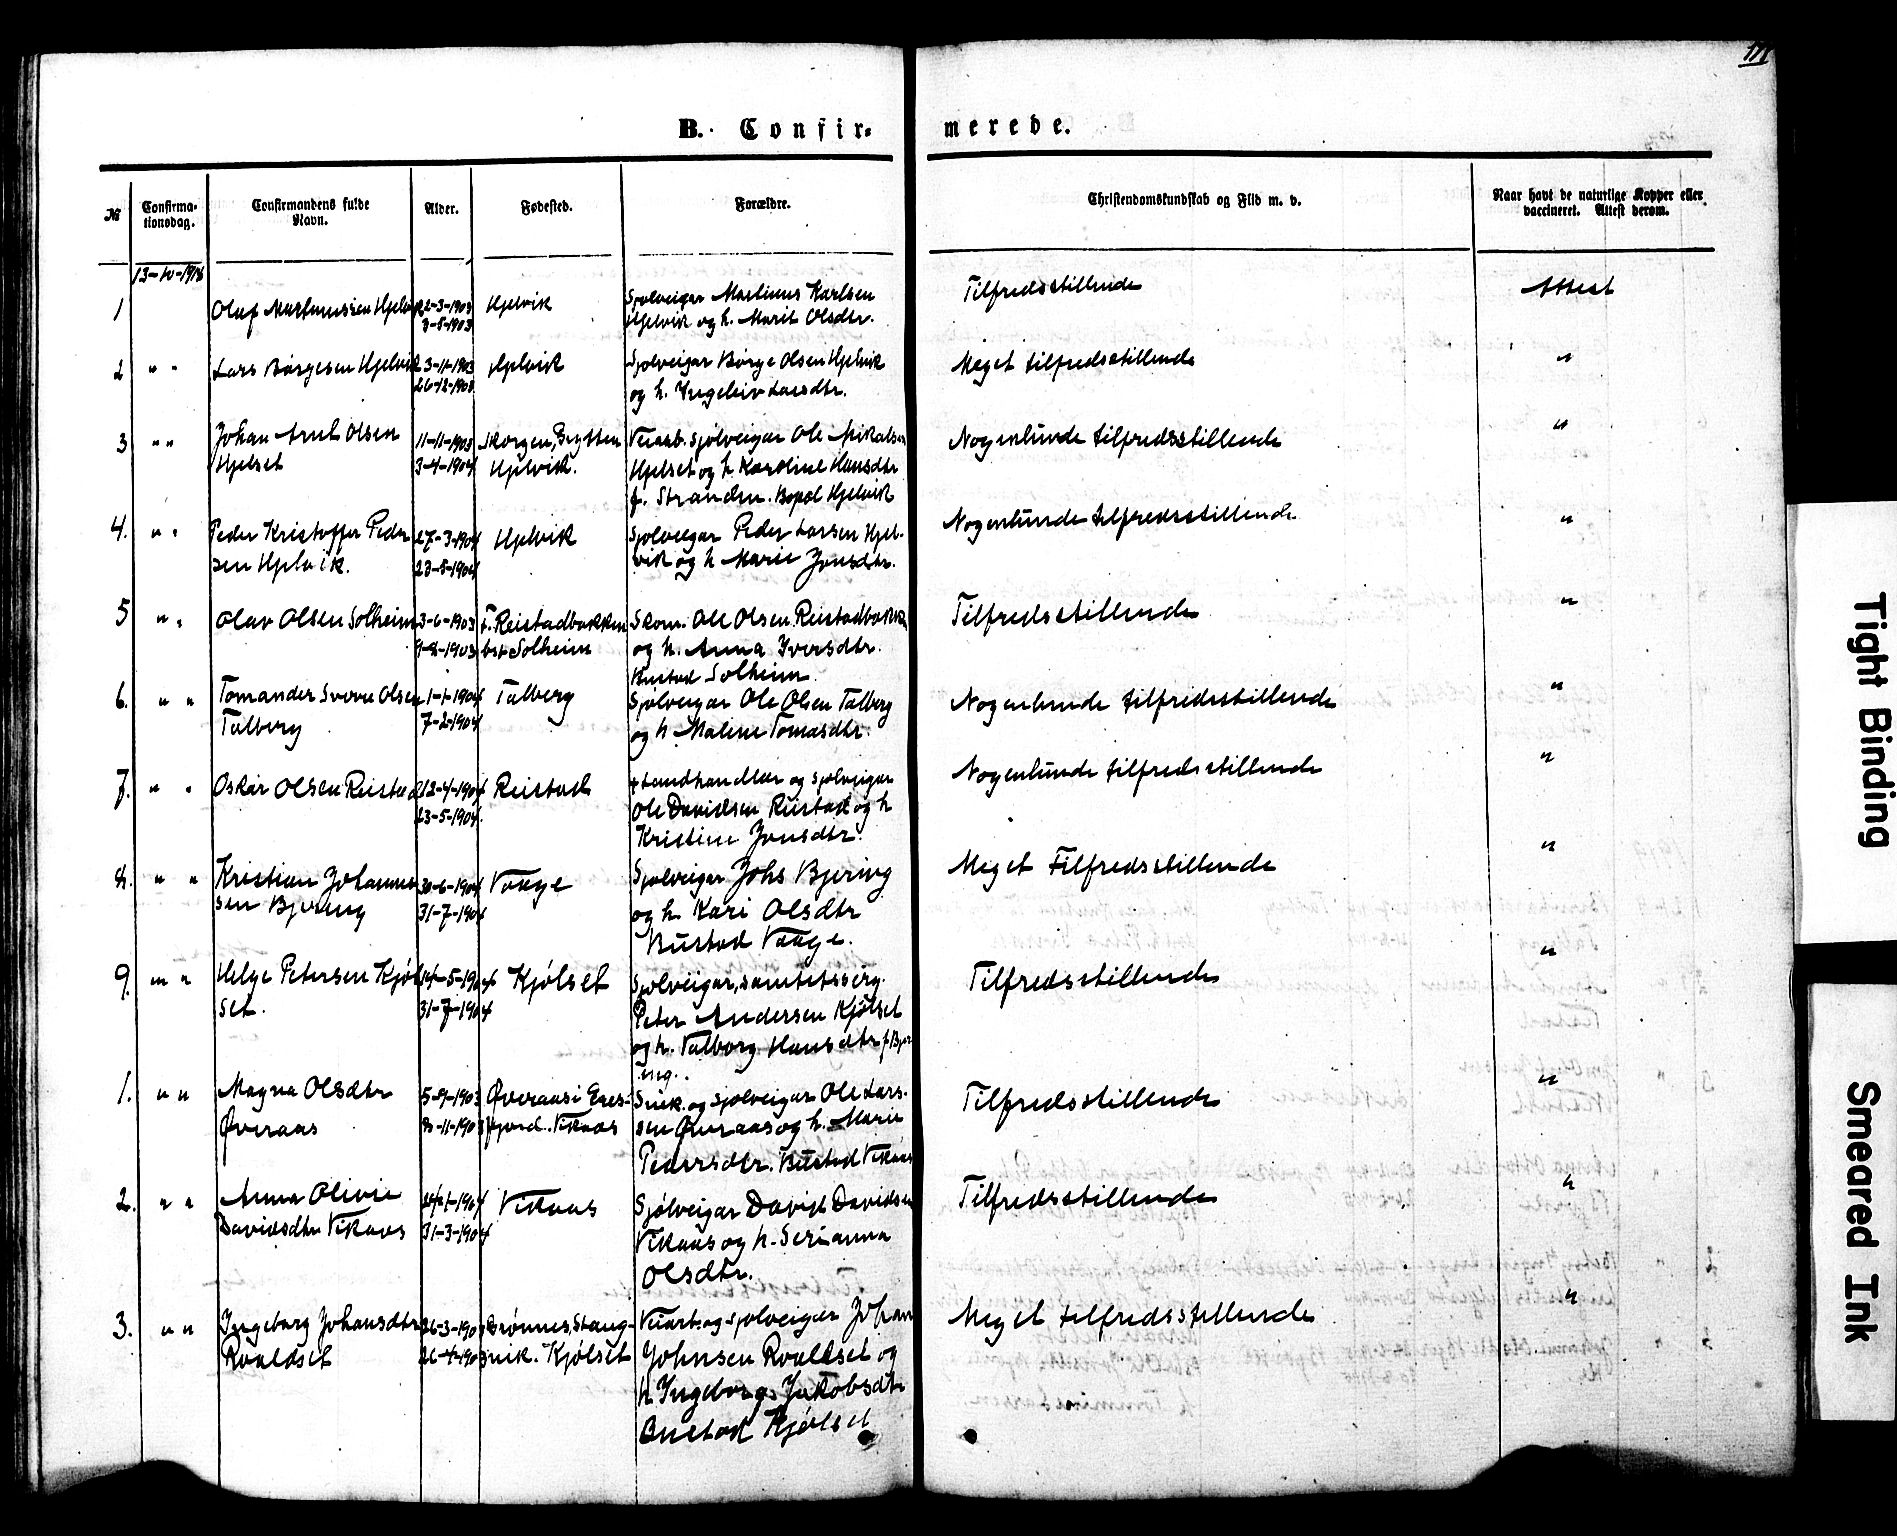 111
B. Confir-
merede.
№
Confirma-
tionsdag.
Confirmandens fulde
Navn.
Alder.
Fødested.
Forældre.
Christendomskundskab og Flid m. v.
Naar havt de naturlige Kopper eller
vaccineret. Attest derom.
13-10-1918
1 Olaf Martinussen Hjelvik 22-3-1903 Hjelvik Sjølveigar Martinus Karlsen Tilfredsstillende Attest
3-5-1903 Hjelvik og h. Marit Olsdtr.
2 " " Lars Børgesen Hjelvik 23-11-1903 Hjelvik Sjølveigar Børge Olsen Hjelvik Meget tilfredsstillende "
26-12-1903 og h. Ingeleiv Larsdtr.
3 " " Johan Arnt Olsen 11-11-1903 Skorgen, Grytten Veiarb. sjølveigar Ole Mikalsen Nogenlunde tilfredsstillende "
Hjelset 3-4-1904 Hjelvik. Hjelset og h Karoline Hansdtr
f. Stranden. Bopæl Hjelvik
4. " " Peder Kristoffer Peder 27-3-1904 Hjelvik Sjølveigar Peder Larsen Hjel- Nogenlunde tilfredsstillende "
sen Hjelvik. 23-5-1904 vik og h Marie Jonsdtr.
5 " " Olav Olsen Solheim 3-6-1903 f. Reistadbakken Skom. Ole Olsen Reistadbakken Tilfredsstillende "
9-8-1903 bst Solheim og h. Anna Iversdtr.
Bustad Solheim.
6. " " Tomander Sverre Olsen 1-1-1904 Talberg Sjølveigar Ole Olsen Talberg Nogenlunde tilfredsstillende "
Talberg 7-2-1904 og h Malene Tomasdtr.
7. " " Oskar Olsen Reistad 12-4-1904 Reistad + Landhandler og sjølveigar Nogenlunde tilfredsstillende "
23-5-1904. Ole Davidsen Reistad og h
Kristine Jonsdtr.
8. " " Kristian Johannes 30-6-1904 Vaage Sjølveigar Johs Bjering Meget Tilfredsstillende "
sen Bjering 31-7-1904 og h. Kari Olsdtr
Bustad Vaage.
9. " " Helge Petersen Kjøl 14-5-1904 Kjølset Sjølveigar, sanitetsserg. Tilfredsstillende "
set. 31-7-1904 Peter Andersen Kjølset
og h. Valborg Hansdtr f. Bjer
ing.
1. " " Magna Olsdtr 5-9-1903 Øveraas i Eres- Snek. og sjølveigar Ole Lars- Tilfredsstillende "
Øveraas 8-11-1903 fjord. Vikaas sen Øveraas og h. Marie
Pedersdtr. Bustad Vikaas
2. " " Anna Olivie 24-1-1904 Vikaas Sjølveigar David Davidsen Tilfredsstillende "
Davidsdtr Vikaas 31-3-1904 Vikaas og h. Serianna
Olsdtr.
3. " " Ingeborg Johansdtr 26-3-1903 Brønnes, Stang- Veiarb. og sjølveigar Johan Meget tilfredsstillende "
Roaldset 26-4-1903 vik. Kjølset Johnsen Roaldset og
h Ingeborg Jakobsdtr
Bustad Kjølset
Tight Binding
Smeared Ink